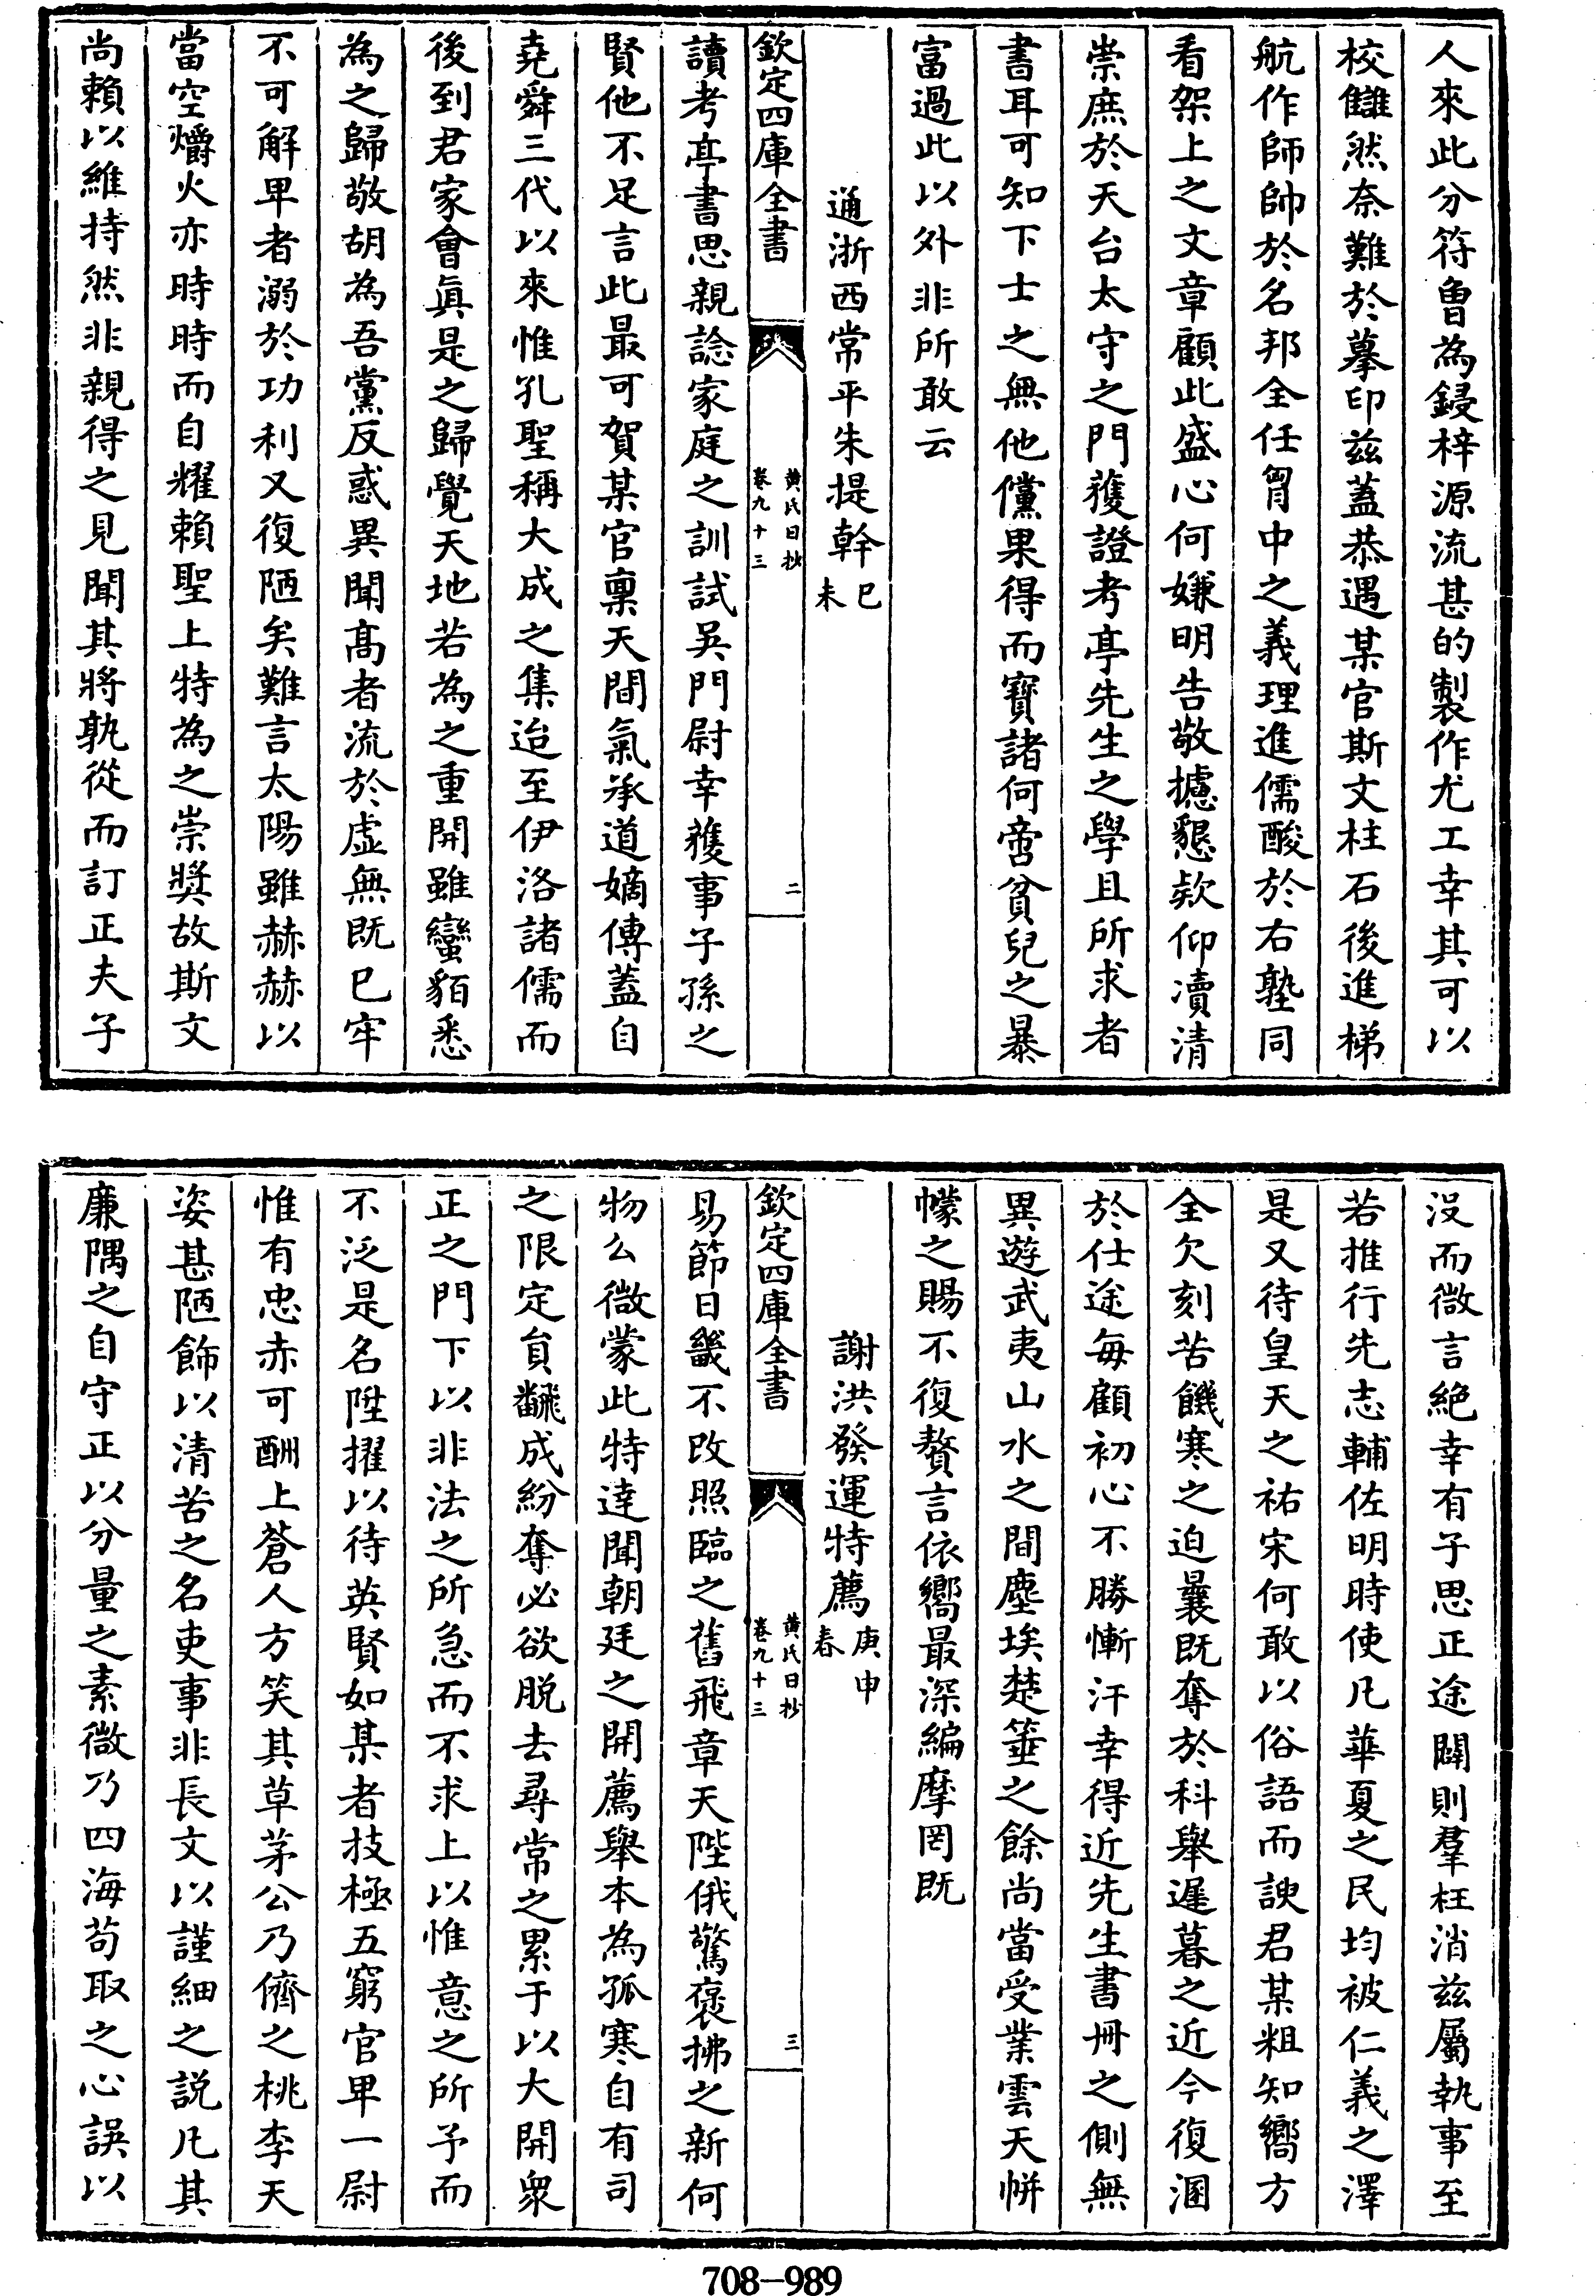 人來此分符魯為鋟梓源流甚的製作尤工幸其可以
校讎然奈難於摹印兹蓋恭遇某官斯文柱石後進梯
航作師帥於名邦全任胷中之義理進儒酸於右塾同
看架上之文章顧此盛心何嫌明告敬攄懇欵仰瀆清
崇庶於天台太守之門獲證考亭先生之學且所求者
書耳可知下士之無他儻果得而寳諸何啻貧兒之暴
富過此以外非所敢云
通浙西常平朱提幹己未
欽定四庫全書
黄氏日抄
卷九十三
二
讀考亭書思親諗家庭之訓試吳門尉幸獲事子孫之
賢他不足言此最可賀某官禀天間氣承道嫡傳蓋自
堯舜三代以來惟孔聖稱大成之集迨至伊洛諸儒而
後到君家會眞是之歸覺天地若為之重開雖蠻貊悉
為之歸敬胡為吾黨反惑異聞髙者流於虚無既已牢
不可解卑者溺於功利又復陋矣難言太陽雖赫赫以
當空爝火亦時時而自耀賴聖上特為之崇奬故斯文
尚賴以維持然非親得之見聞其將孰從而訂正夫子
没而微言絶幸有子思正途闢則羣枉消兹屬執事至
若推行先志輔佐明時使凡華夏之民均被仁義之澤
是又待皇天之祐宋何敢以俗語而諛君某粗知嚮方
全欠刻苦饑寒之迫曩既奪於科舉遲暮之近今復溷
於仕途毎顧初心不勝慚汗幸得近先生書冊之側無
異遊武夷山水之間塵埃楚箠之餘尚當受業雲天帡
幪之賜不復贅言依嚮最深編摩罔既
謝洪發運特薦庚申春
欽定四庫全書
黄氏日抄
卷九十三
三
易節日畿不改照臨之舊飛章天陛俄驚褒拂之新何
物么微蒙此特達聞朝廷之開薦舉本為孤寒自有司
之限定負飜成紛奪必欲脱去尋常之累于以大開衆
正之門下以非法之所急而不求上以惟意之所予而
不泛是名陞擢以待英賢如某者技極五窮官卑一尉
惟有忠赤可酬上蒼人方笑其草茅公乃儕之桃李天
姿甚陋飾以清苦之名吏事非長文以謹細之説凡其
廉隅之自守正以分量之素微乃四海苟取之心誤以
708-989